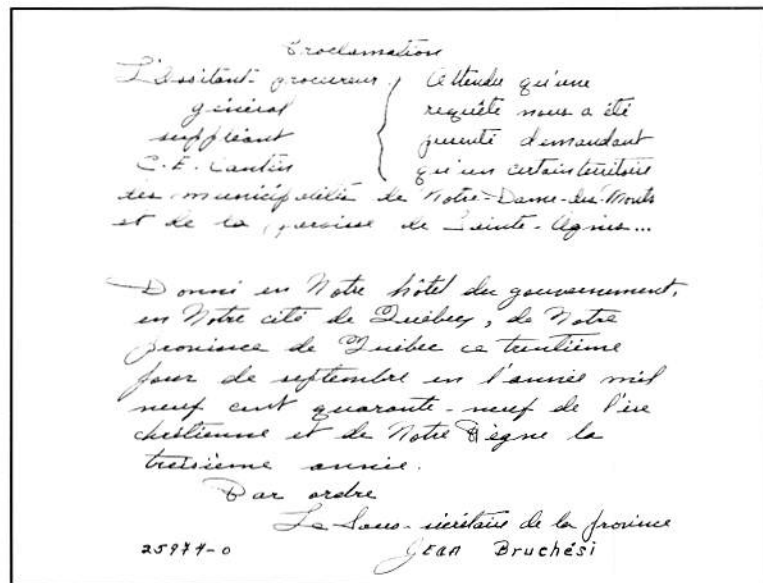 Proclamation
L'Assitant-procureur
général
suppléant
C.E. Cantin
Attendu qu'une
requête nous a été
présenté demandant
qu'un certain territoire
des municipalités de Notre-Dame-des-Monts
et de la paroisse de Sainte-Agnès...
Donné en Notre hôtel du gouvernement,
en Notre cité de Québec, de Notre
province de Québec ce trentième
jour de septembre en l'année mil
neuf cent quarante-neuf de l'ère
chrétienne et de Notre Règne la
treizième année.
Par ordre
Le Sous-secrétaire de la province
25977-0 Jean Bruchési